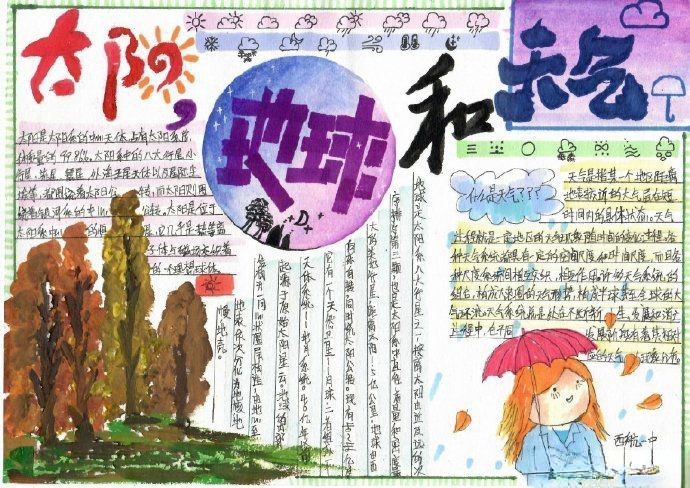 太阳，地球和天气
太阳是太阳系的中心天体，占有太阳系总
体质量的99.86%。太阳系中的八大行星、小
行星、流星、彗星、外海王星天体以及星际尘
埃等，都围绕着太阳公转，而太阳则围
绕着银河系的中心公转。太阳是位于
太阳系中心的恒星，它几乎是热等离
子体与磁场交织着
的一个理想球体。
地球是太阳系八大行星之一，按离太阳由近及远的次
序排为第三颗，也是太阳系中直径、质量和密度最
大的类地行星，距离太阳1.5亿公里。地球自西
向东自转，同时绕太阳公转。现有40~46亿岁，
它有一个天然卫星——月球，二者组成一个
天体系统——地月系统。46亿年以前
起源于原始太阳星云。地球内部
有核、幔、壳
什么是天气???
天气是指某一个地区距离
地表较近的大气层在短
时间内的具体状态。天气
过程就是一定地区的天气现象随时间的变化过程。各
种天气系统都具有一定的空间尺度和时间尺度，而且各
种尺度系统间相互交织、相互作用。许多天气系统的
组合，构成大范围的天气形势，构成半球甚至全球的大
气环流。天气系统总是处在不断新生、发展和消亡
过程中，在不同
发展阶段有着其相对
应的天气现象分布。
西航一中